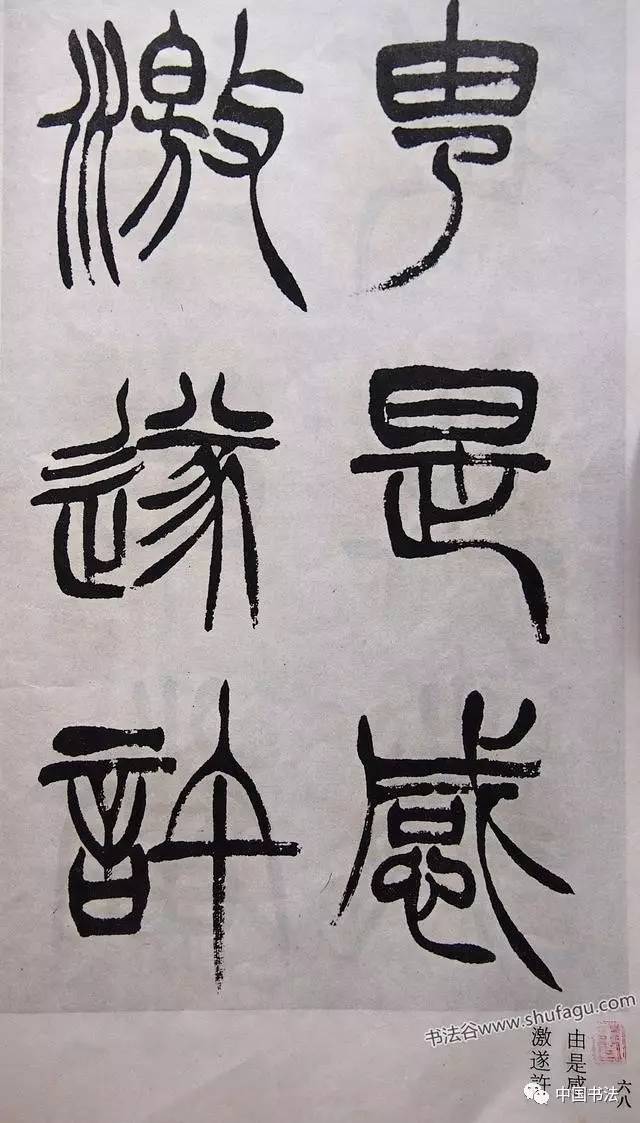 由是感
激遂許
书法谷www.shufagu.com
由是感
激遂許
六八
中国书法